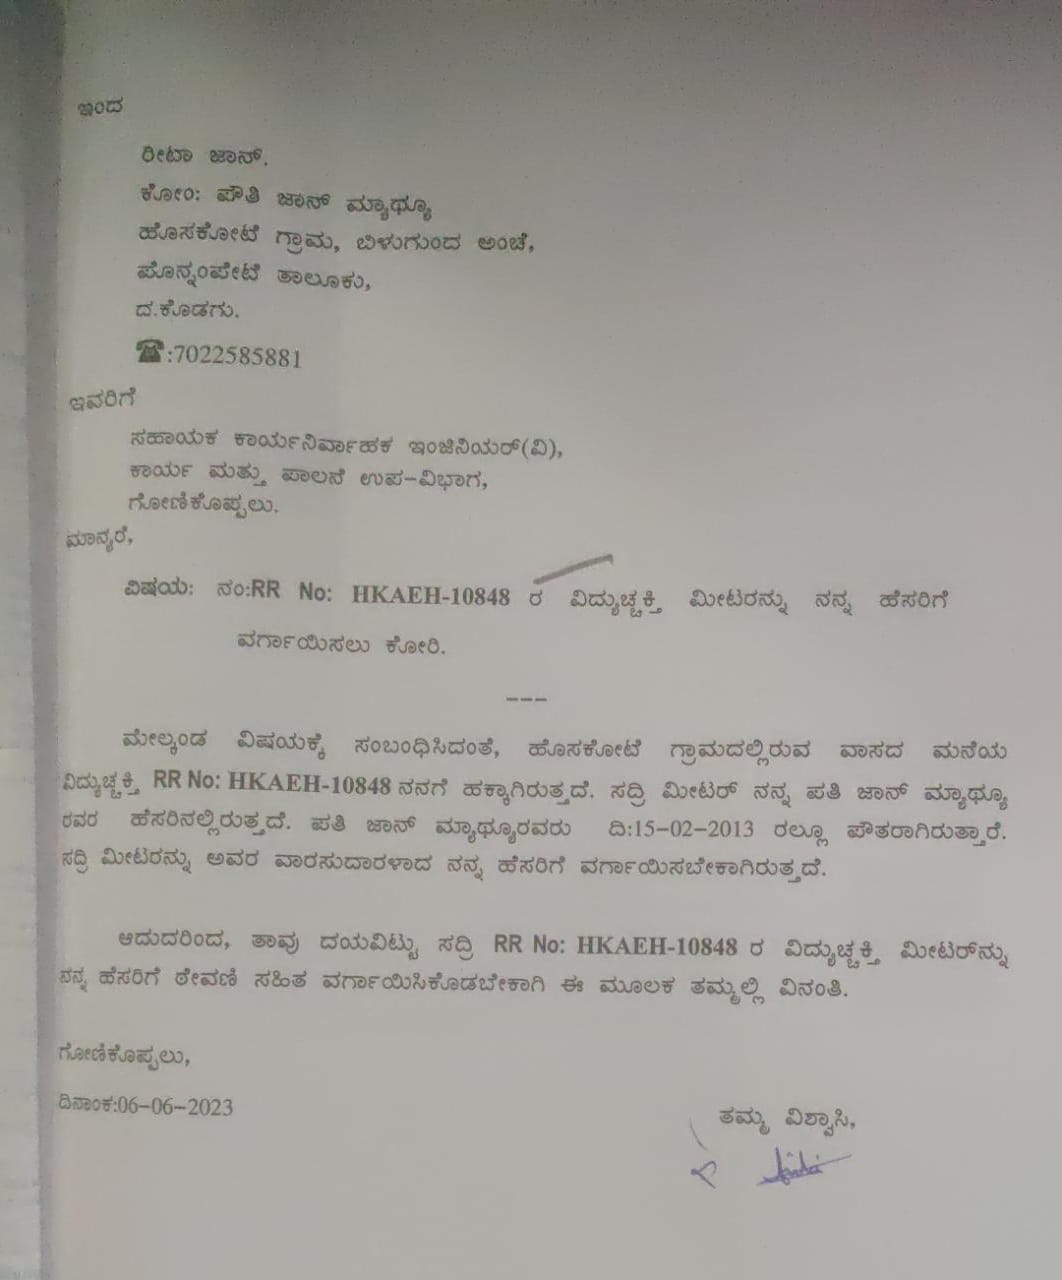 ಇಂದ
ರೀಟಾ ಜಾನ್.
ಕೋಂ: ಪೌತಿ ಜಾನ್ ಮ್ಯಾಥ್ಯೂ
ಹೊಸಕೋಟೆ ಗ್ರಾಮ, ಬಿಳುಗುಂದ ಅಂಚೆ,
ಪೊನ್ನಂಪೇಟೆ ತಾಲೂಕು,
ದ.ಕೊಡಗು.
☎:7022585881
ಇವರಿಗೆ
ಸಹಾಯಕ ಕಾರ್ಯನಿರ್ವಾಹಕ ಇಂಜಿನಿಯರ್(ವಿ),
ಕಾರ್ಯ ಮತ್ತು ಪಾಲನೆ ಉಪ-ವಿಭಾಗ,
ಗೋಣಿಕೊಪ್ಪಲು.
ಮಾನ್ಯರೆ,
ವಿಷಯ: ನಂ:RR No: HKAEH-10848 ರ ವಿದ್ಯುಚ್ಚಕ್ತಿ ಮೀಟರನ್ನು ನನ್ನ ಹೆಸರಿಗೆ
ವರ್ಗಾಯಿಸಲು ಕೋರಿ.
---
ಮೇಲ್ಕಂಡ ವಿಷಯಕ್ಕೆ ಸಂಬಂಧಿಸಿದಂತೆ, ಹೊಸಕೋಟೆ ಗ್ರಾಮದಲ್ಲಿರುವ ವಾಸದ ಮನೆಯ
ವಿದ್ಯುಚ್ಚಕ್ತಿ RR No: HKAEH-10848 ನನಗೆ ಹಕ್ಕಾಗಿರುತ್ತದೆ. ಸದ್ರಿ ಮೀಟರ್ ನನ್ನ ಪತಿ ಜಾನ್ ಮ್ಯಾಥ್ಯೂ
ರವರ ಹೆಸರಿನಲ್ಲಿರುತ್ತದೆ. ಪತಿ ಜಾನ್ ಮ್ಯಾಥ್ಯೂರವರು ದಿ:15-02-2013 ರಲ್ಲೂ ಪೌತರಾಗಿರುತ್ತಾರೆ.
ಸದ್ರಿ ಮೀಟರನ್ನು ಅವರ ವಾರಸುದಾರಳಾದ ನನ್ನ ಹೆಸರಿಗೆ ವರ್ಗಾಯಿಸಬೇಕಾಗಿರುತ್ತದೆ.
ಆದುದರಿಂದ, ತಾವು ದಯವಿಟ್ಟು ಸದ್ರಿ RR No: HKAEH-10848 ರ ವಿದ್ಯುಚ್ಚಕ್ತಿ ಮೀಟರ್‌ನ್ನು
ನನ್ನ ಹೆಸರಿಗೆ ಠೇವಣಿ ಸಹಿತ ವರ್ಗಾಯಿಸಿಕೊಡಬೇಕಾಗಿ ಈ ಮೂಲಕ ತಮ್ಮಲ್ಲಿ ವಿನಂತಿ.
ಗೋಣಿಕೊಪ್ಪಲು,
ದಿನಾಂಕ:06-06-2023
ತಮ್ಮ ವಿಶ್ವಾಸಿ,